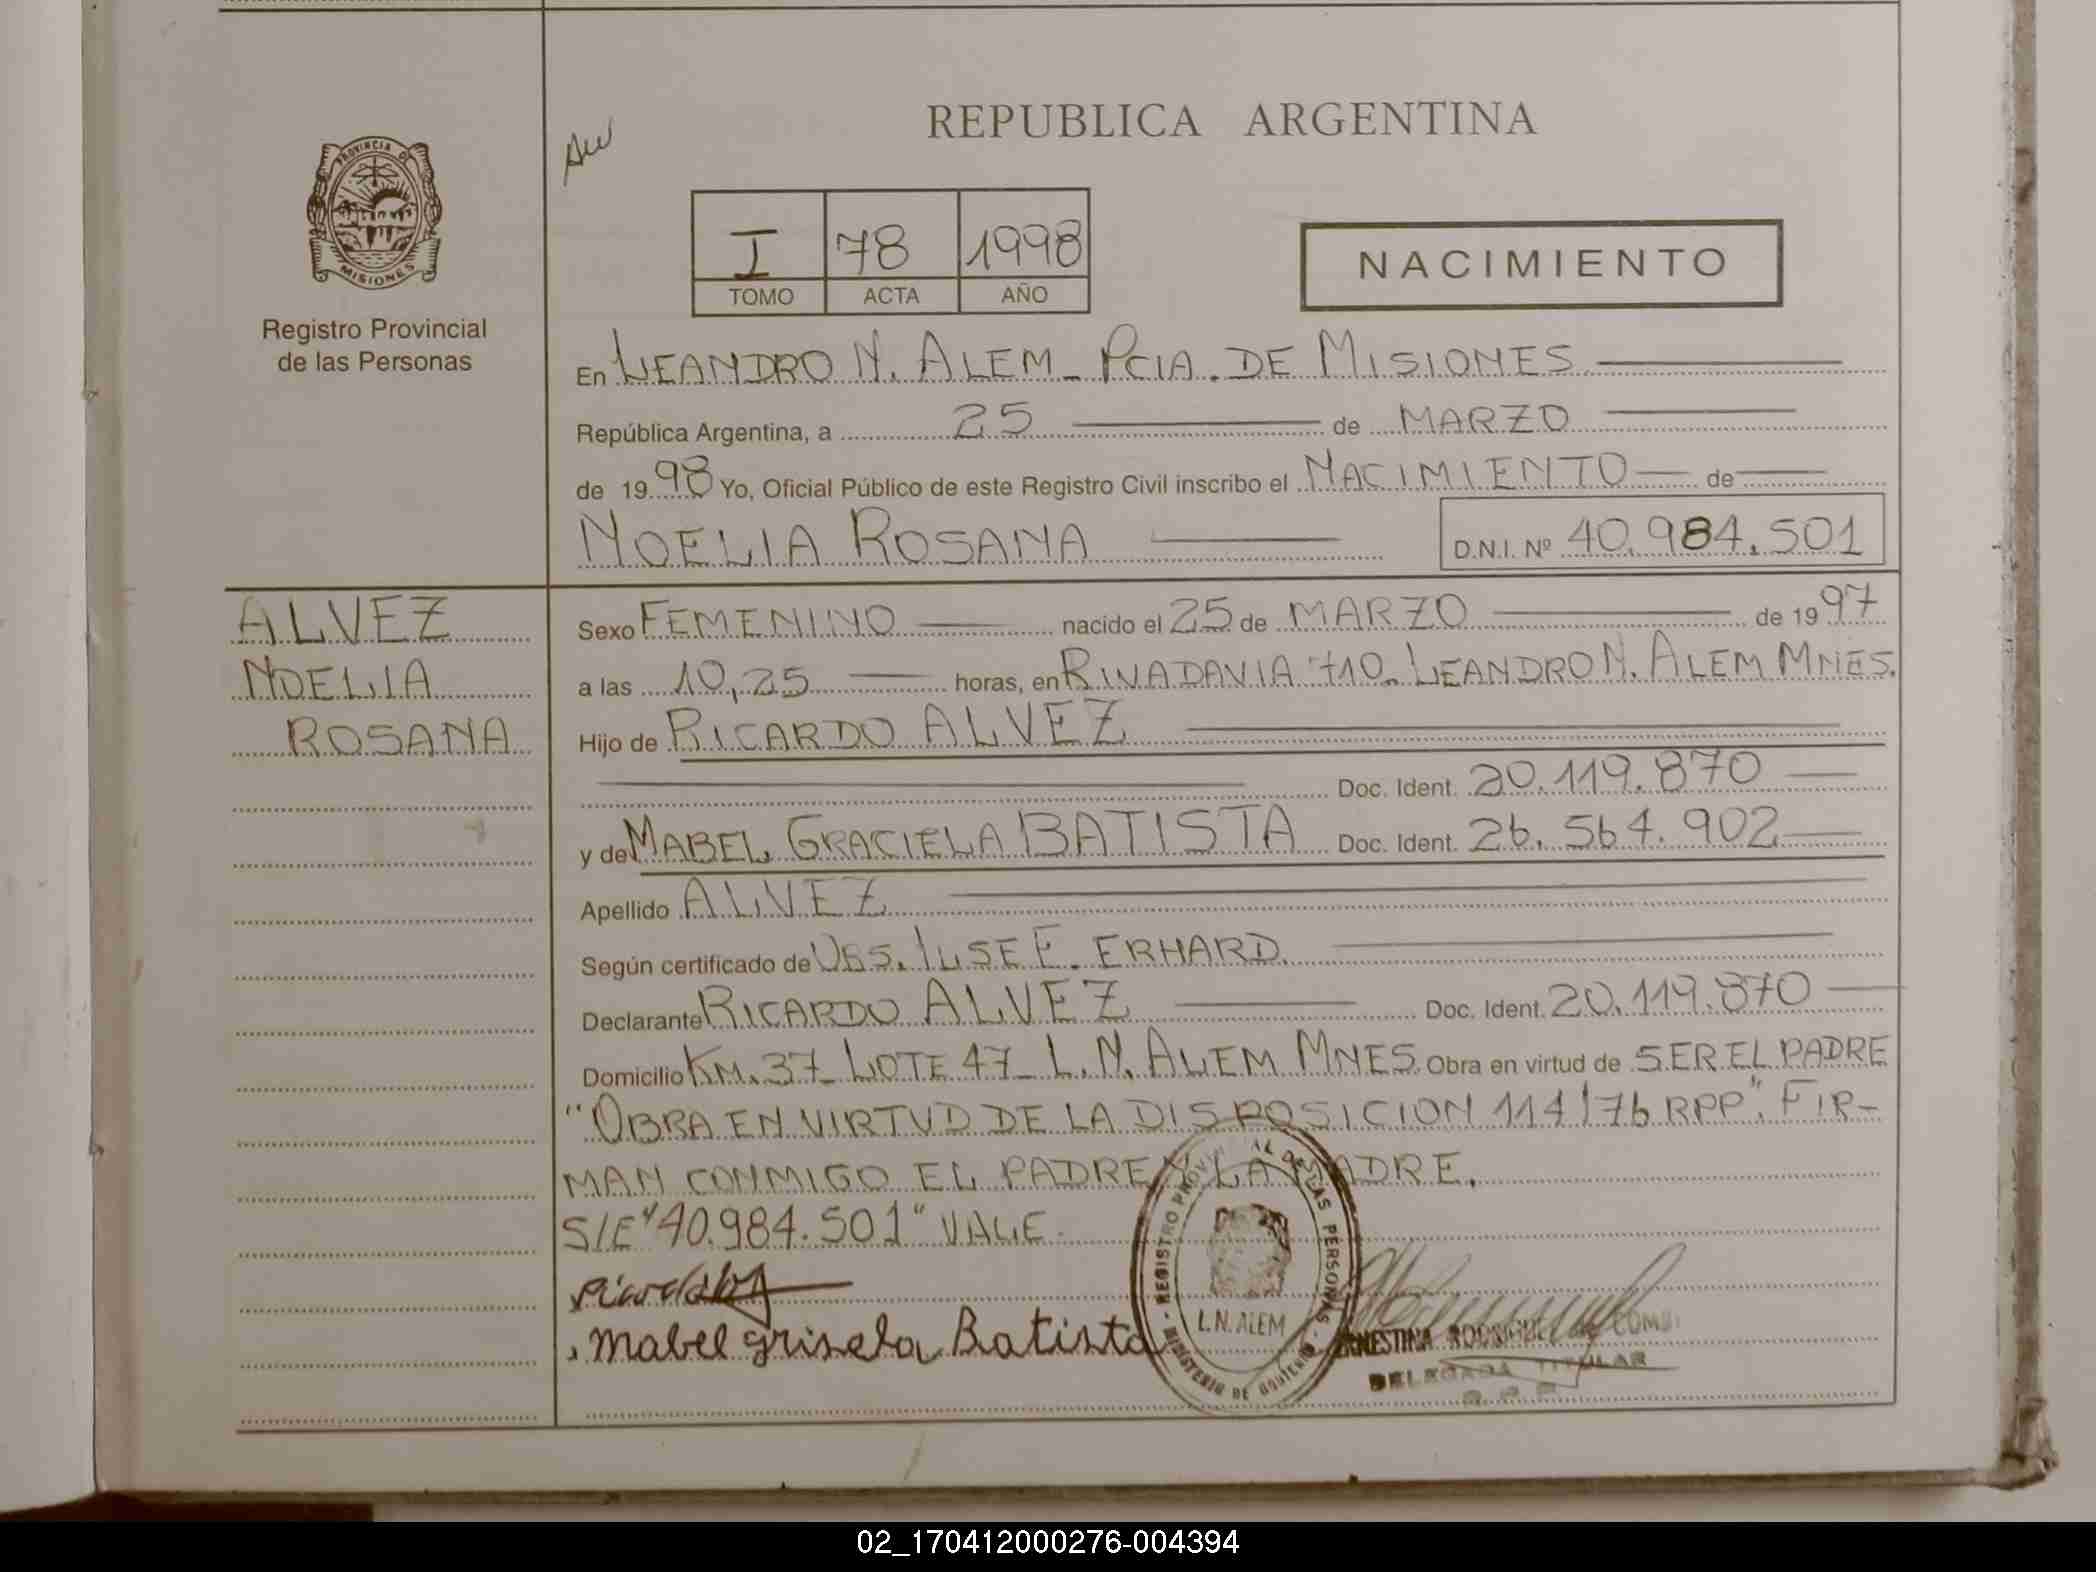 REPUBLICA ARGENTINA
PROVINCIA DE MISIONES
Registro Provincial
de las Personas
I 78 1998
TOMO ACTA AÑO
NACIMIENTO
En LEANDRO N. ALEM - PCIA. DE MISIONES
República Argentina, a 25 de MARZO
de 1998 Yo, Oficial Público de este Registro Civil inscribo el NACIMIENTO de
NOELIA ROSANA D.N.I. Nº 40.984.501
ALVEZ
NOELIA
ROSANA
Sexo FEMENINO nacido el 25 de MARZO de 1997
a las 10,25 horas, en RIVADAVIA 710. LEANDRO N. ALEM MNES.
Hijo de RICARDO ALVEZ
Doc. Ident. 20.119.870
y de MABEL GRACIELA BATISTA Doc. Ident. 26.564.902
Apellido ALVEZ
Según certificado de OBS. ILSE E. ERHARD.
Declarante RICARDO ALVEZ Doc. Ident. 20.119.870
Domicilio KM. 37 LOTE 47 L.N. ALEM MNES. Obra en virtud de SER EL PADRE
"OBRA EN VIRTUD DE LA DISPOSICION 114/76 RPP". FIR-
MAN CONMIGO EL PADRE Y LA MADRE.
S/E "40.984.501" VALE.
Mabel Grisela Batista
REGISTRO PROVINCIAL DE LAS PERSONAS - MINISTERIO DE GOBIERNO -
L.N. ALEM
ERNESTINA
DELEGADA TITULAR
R.P.P.
02_170412000276-004394